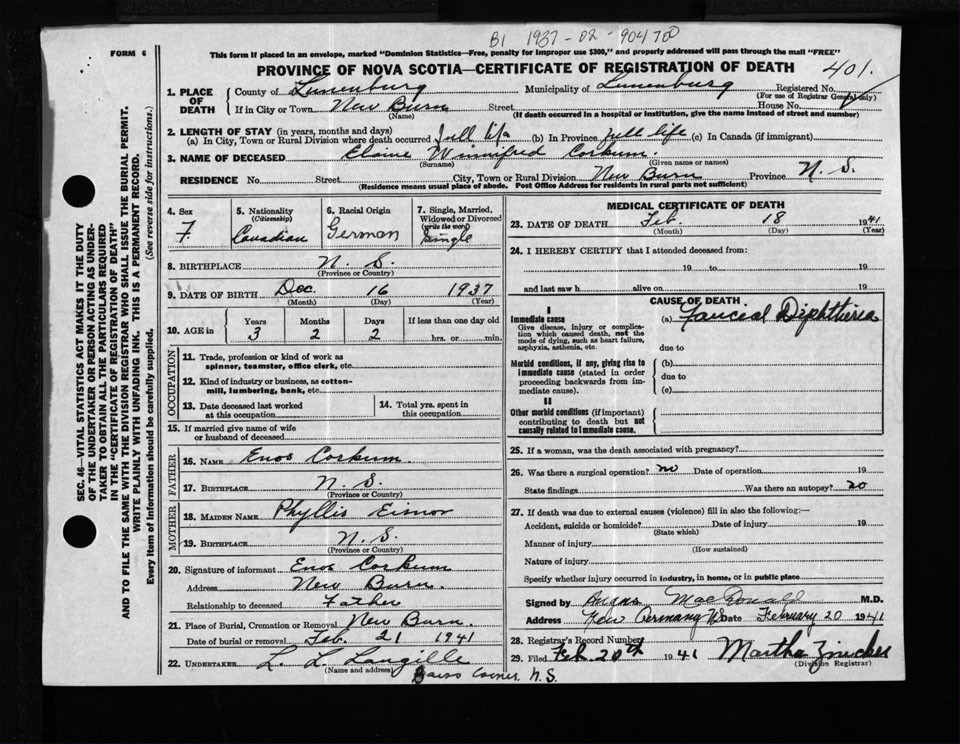 B1 1937-02-904700
FORM 6
This form if placed in an envelope, marked "Dominion Statistics—Free, penalty for improper use $300," and properly addressed will pass through the mail "FREE"
PROVINCE OF NOVA SCOTIA—CERTIFICATE OF REGISTRATION OF DEATH
401.
1. PLACE OF DEATH
County of Lunenburg Municipality of Lunenburg Registered No.
(For use of Registrar General only)
If in City or Town New Burn Street House No.
(Name) (If death occurred in a hospital or institution, give the name instead of street and number)
2. LENGTH OF STAY (in years, months and days)
(a) In City, Town or Rural Division where death occurred full life (b) In Province full life (c) In Canada (if immigrant)
3. NAME OF DECEASED Elaine Winnifred Corkum.
(Surname) (Given name or names)
RESIDENCE No. Street City, Town or Rural Division New Burn Province N. S.
(Residence means usual place of abode. Post Office Address for residents in rural parts not sufficient)
SEC. 46—VITAL STATISTICS ACT MAKES IT THE DUTY
OF THE UNDERTAKER OR PERSON ACTING AS UNDER-
TAKER TO OBTAIN ALL THE PARTICULARS REQUIRED
IN THE "CERTIFICATE OF REGISTRATION OF DEATH"
AND TO FILE THE SAME WITH THE DIVISION REGISTRAR WHO SHALL ISSUE THE BURIAL PERMIT.
WRITE PLAINLY WITH UNFADING INK. THIS IS A PERMANENT RECORD.
Every item of Information should be carefully supplied. (See reverse side for instructions.)
4. Sex F.
5. Nationality (Citizenship) Canadian
6. Racial Origin German
7. Single, Married, Widowed or Divorced (write the word) Single
8. BIRTHPLACE N. S.
(Province or Country)
9. DATE OF BIRTH Dec. 16 1937
(Month) (Day) (Year)
10. AGE in Years Months Days If less than one day old
3 2 2 hrs. or min.
OCCUPATION
11. Trade, profession or kind of work as
spinner, teamster, office clerk, etc.
12. Kind of industry or business, as cotton-
mill, lumbering, bank, etc.
13. Date deceased last worked
at this occupation
14. Total yrs. spent in
this occupation
15. If married give name of wife
or husband of deceased
FATHER
16. NAME Enos Corkum.
17. BIRTHPLACE N. S.
(Province or Country)
MOTHER
18. MAIDEN NAME Phyllis Eisnor
19. BIRTHPLACE N. S.
(Province or Country)
20. Signature of informant Enos Corkum
Address New Burn.
Relationship to deceased Father
21. Place of Burial, Cremation or Removal New Burn.
Date of burial or removal Feb. 21 1941
22. UNDERTAKER L. L. Langille
(Name and address)
Corner, N.S.
MEDICAL CERTIFICATE OF DEATH
23. DATE OF DEATH Feb. 18 1941
(Month) (Day) (Year)
24. I HEREBY CERTIFY that I attended deceased from:
19 to 19
and last saw h alive on 19
CAUSE OF DEATH
I
Immediate cause
Give disease, injury or complica-
tion which caused death, not the
mode of dying, such as heart failure,
asphyxia, asthenia, etc.
(a) Faucial Diphtheria
due to
Morbid conditions, if any, giving rise to
immediate cause (stated in order
proceeding backwards from im-
mediate cause).
(b)
due to
(c)
II
Other morbid conditions (if important)
contributing to death but not
causally related to immediate cause.
25. If a woman, was the death associated with pregnancy?
26. Was there a surgical operation? no Date of operation 19
State findings Was there an autopsy? no
27. If death was due to external causes (violence) fill in also the following:—
Accident, suicide or homicide? Date of injury 19
(State which)
Manner of injury
(How sustained)
Nature of injury
Specify whether injury occurred in industry, in home, or in public place
Signed by Angus MacDonald M.D.
Address New Germany NS Date February 20 1941
28. Registrar's Record Number
29. Filed Feb 20th 1941 Martha Zwicker
(Division Registrar)